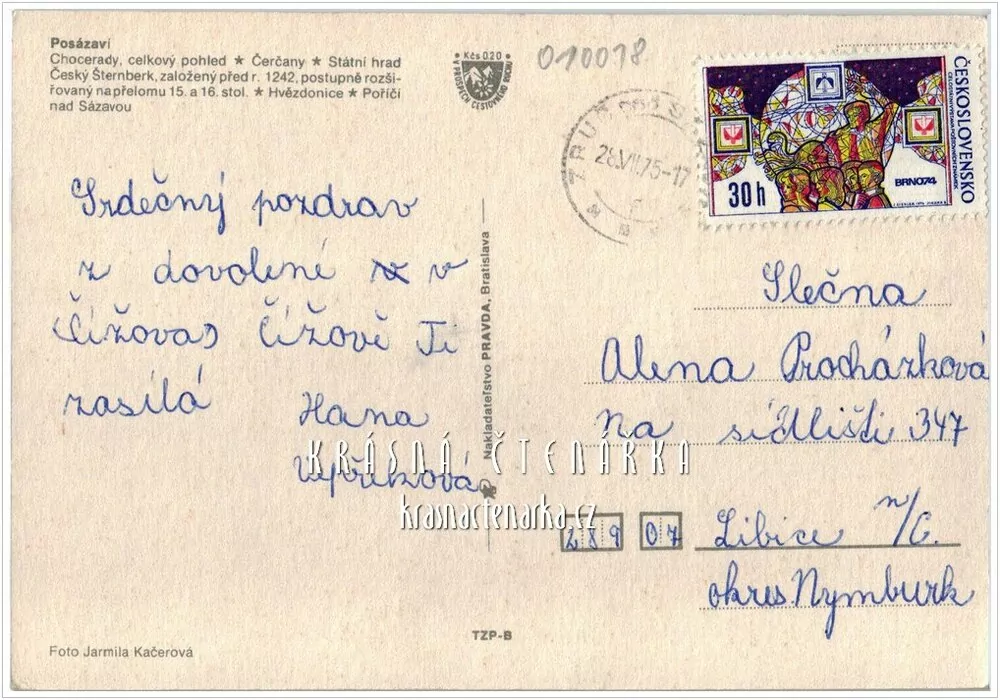 Posázaví
Chocerady, celkový pohled ★ Čerčany ★ Státní hrad
Český Šternberk, založený před r. 1242, postupně rozší-
řovaný na přelomu 15. a 16. stol. ★ Hvězdonice ★ Poříčí
nad Sázavou
Kčs 0,20
V PROSPĚCH CESTOVNÍHO RUCHU
010018
28.VII.75-17
ČESKOSLOVENSKO
BRNO74
30h
Srdečný pozdrav
z dovolené v v
(Čížova) Čížově Ti
zasílá Hana
Vepříková
Nakladatelstvo PRAVDA, Bratislava
Slečna
Alena Procházková
Na sídlišti 347
289 07 Libice n/C.
okres Nymburk
KRÁSNÁ ČTENÁŘKA
krasnactenarka.cz
TZP-B
Foto Jarmila Kačerová